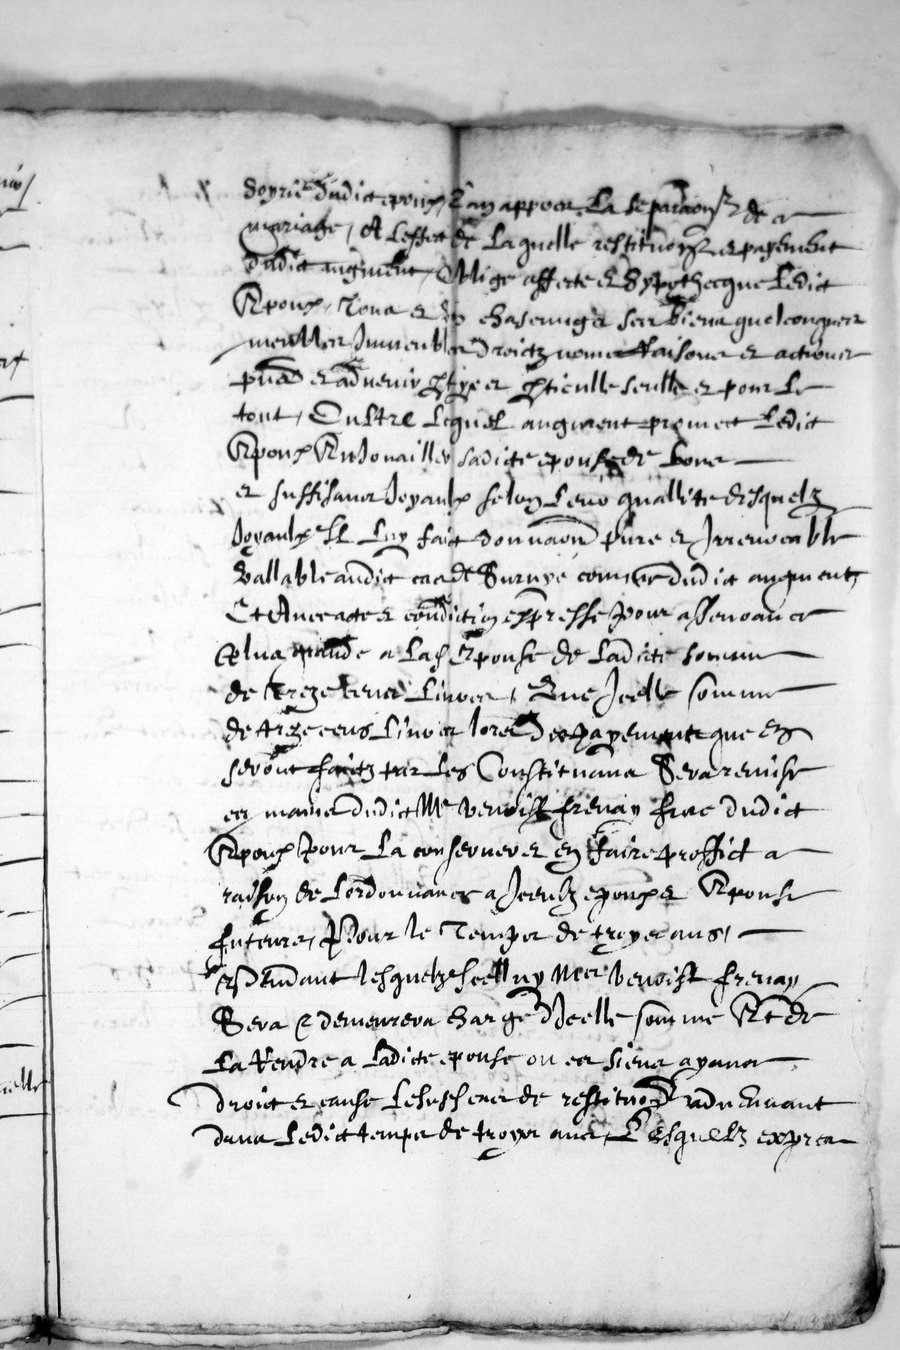 dudict epoux, la separaon de ce
mariage, Et l'effect de laquelle restituon et payement
dudict augment, Oblige affecte et hypothecque Ledict
Epoux, Tous et ses biens quelconques
meubles Immeubles droictz noms Raisons et actions
pnts et advenir seulle et pour Le
tout, Oultre Lequel augment promect Ledict
Epoux Enjouailler sadicte epouse de bons
et suffisans Joyaulx selon leur quallite desquelz
Joyaulx Il Luy faict donnaon pure et Irrevocable
Vallable audict cas de Survye comme dudict augment,
Et Avec acte et condition expresse pour asseurance
plus grande a Lad Epouse de Ladicte somme
de Treze cens Livres, Que Icelle somme
de treze cens Livres lors des payements que en
seront faictz par Les Constituans Sera remise
en mains dudict Me benoist frenay frere dudict
Epoux Pour La conserver et en faire proffict a
raison de L'ordonnance a Iceulx epoux et Epouse
futeurs, Pour le Temps de troys ans,
Pendant lesquelz Icelluy Mre benoist frenay
Sera & demeurera charge d'Icelle somme Et de
La Rendre a Ladicte epouse ou es siens ayans
droict et cause Le de restituon advenant
dans Ledict temps de troys ans, Lesquelz expirez